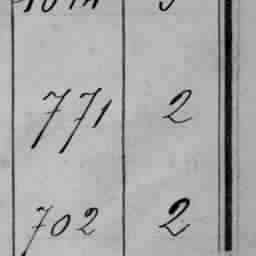 771 2
702 2